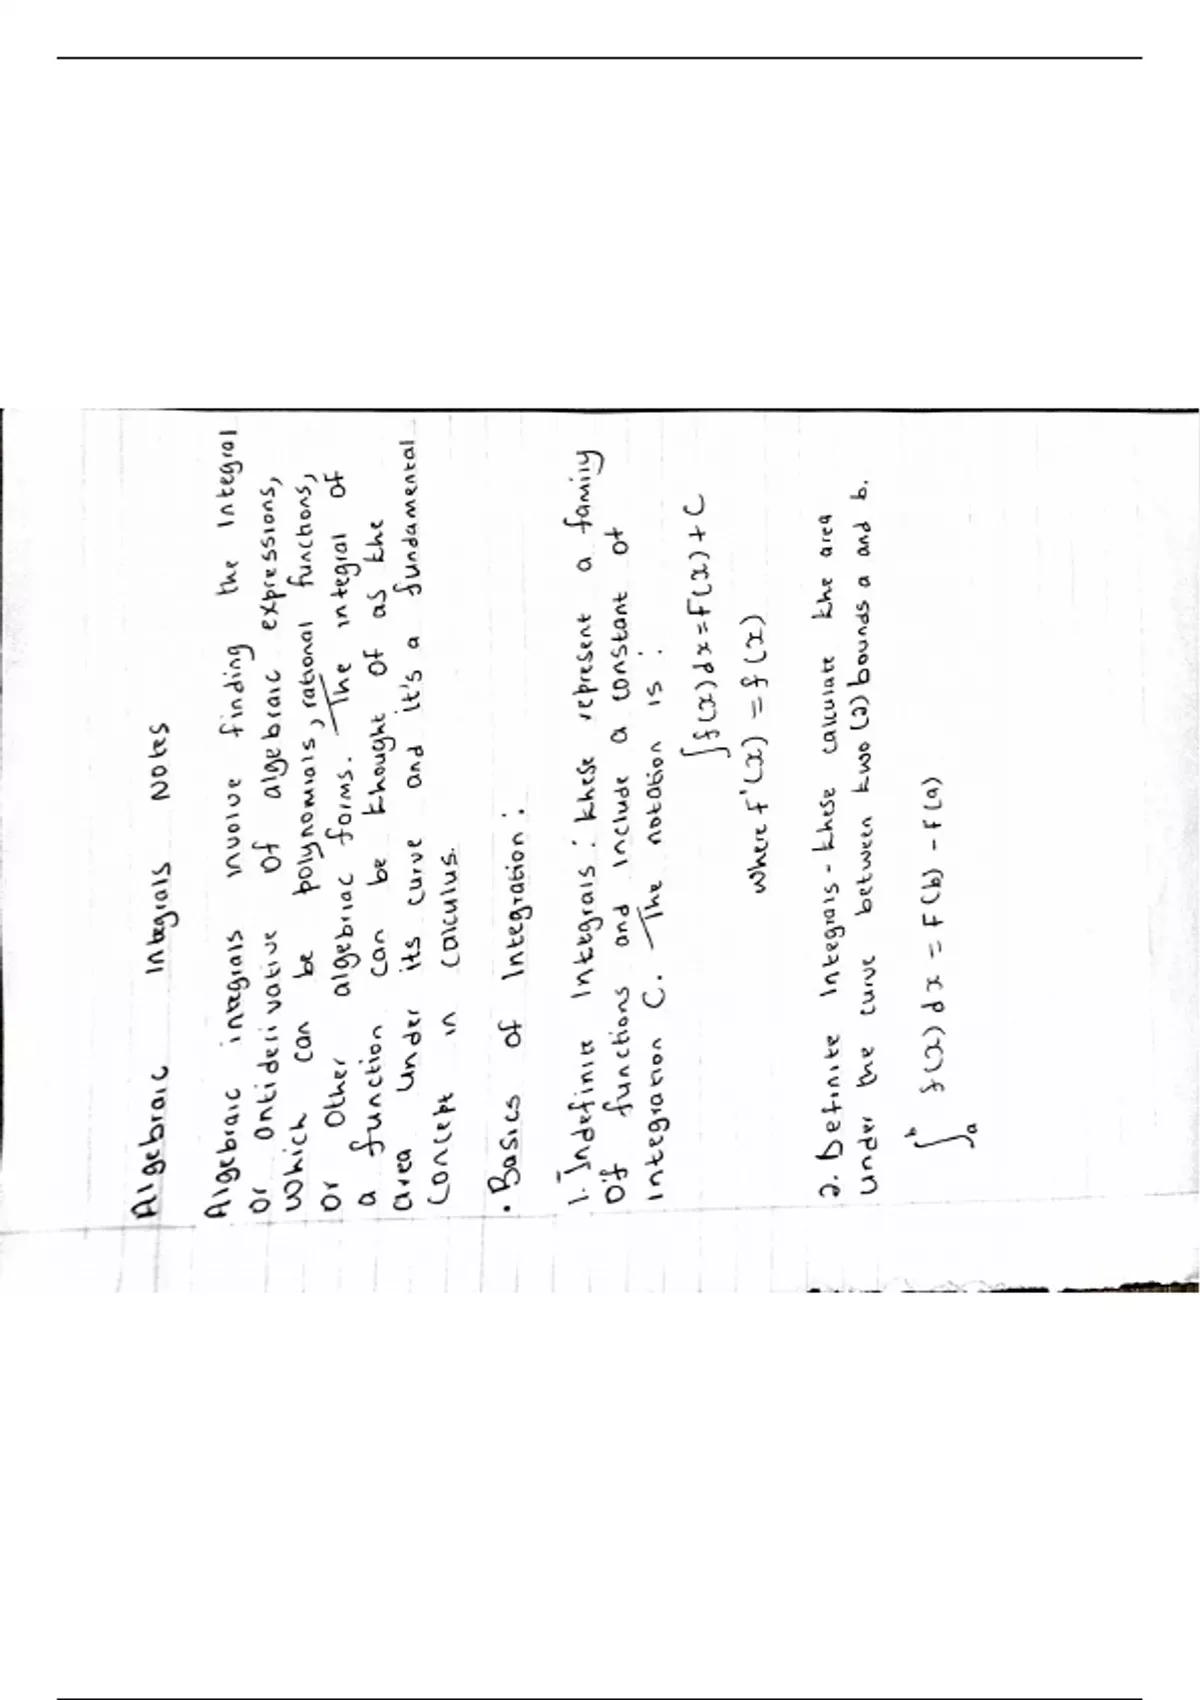 Algebraic Integrals Notes
Algebraic integrals involve finding the integral
or antiderivative of algebraic expressions,
which can be polynomials, rational functions,
or other algebriac forms. The integral of
a function can be thought of as the
area under its curve and it's a fundamental
concept in calculus.
• Basics of Integration:
1. Indefinite Integrals: these represent a family
of functions and include a constant of
integration C. The notation is :
∫f(x)dx=F(x)+C
where F'(x) = f(x)
2. Definite Integrals - these calculate the area
under the curve between two (2) bounds a and b.
∫ₐᵇ f(x)dx = F(b) - F(a)